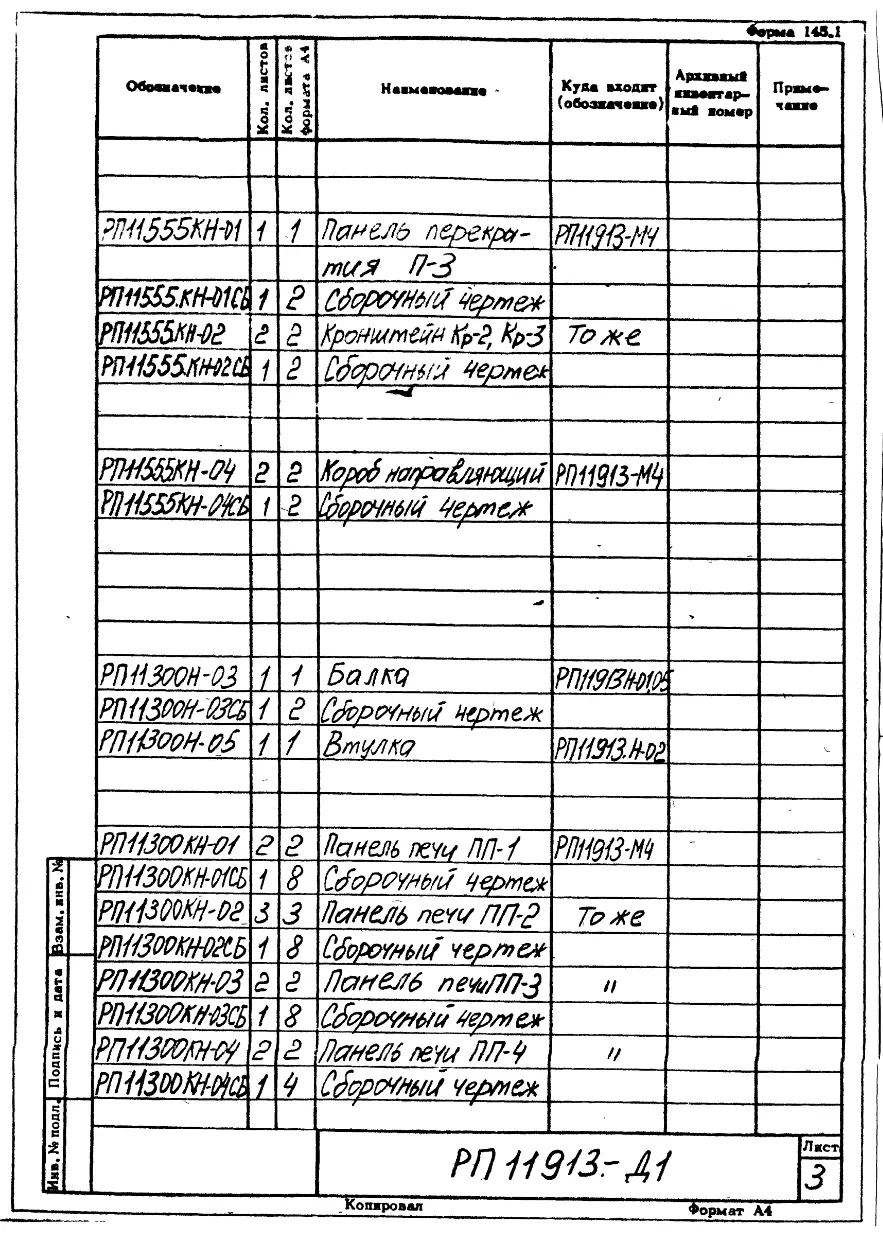 Форма 145.1
Обозначение Кол. листов Кол. листов формата А4 Наименование Куда входит (обозначение) Архивный инвентарный номер Примечание
РП11555КН-01 1 1 Панель перекры- РП11913-М4
тия П-3
РП11555.КН-01СБ 1 2 Сборочный чертеж
РП11555.КН-02 2 2 Кронштейн Кр-2, Кр-3 То же
РП11555.КН-02СБ 1 2 Сборочный чертеж
РП11555КН-04 2 2 Короб направляющий РП11913-М4
РП11555КН-04СБ 1 2 Сборочный чертеж
РП11300Н-03 1 1 Балка РП11913Н-01,05
РП11300Н-03СБ 1 2 Сборочный чертеж
РП11300Н-05 1 1 Втулка РП11913.Н-02
РП11300КН-01 2 2 Панель печи ПП-1 РП11913-М4
РП11300КН-01СБ 1 8 Сборочный чертеж
РП11300КН-02 3 3 Панель печи ПП-2 То же
РП11300КН-02СБ 1 8 Сборочный чертеж
РП11300КН-03 2 2 Панель печи ПП-3 "
РП11300КН-03СБ 1 8 Сборочный чертеж
РП11300КН-04 2 2 Панель печи ПП-4 "
РП11300КН-04СБ 1 4 Сборочный чертеж
Взам. инв. №
Подпись и дата
Инв. № подл.
РП 11913-Д1
Лист
3
Копировал Формат А4